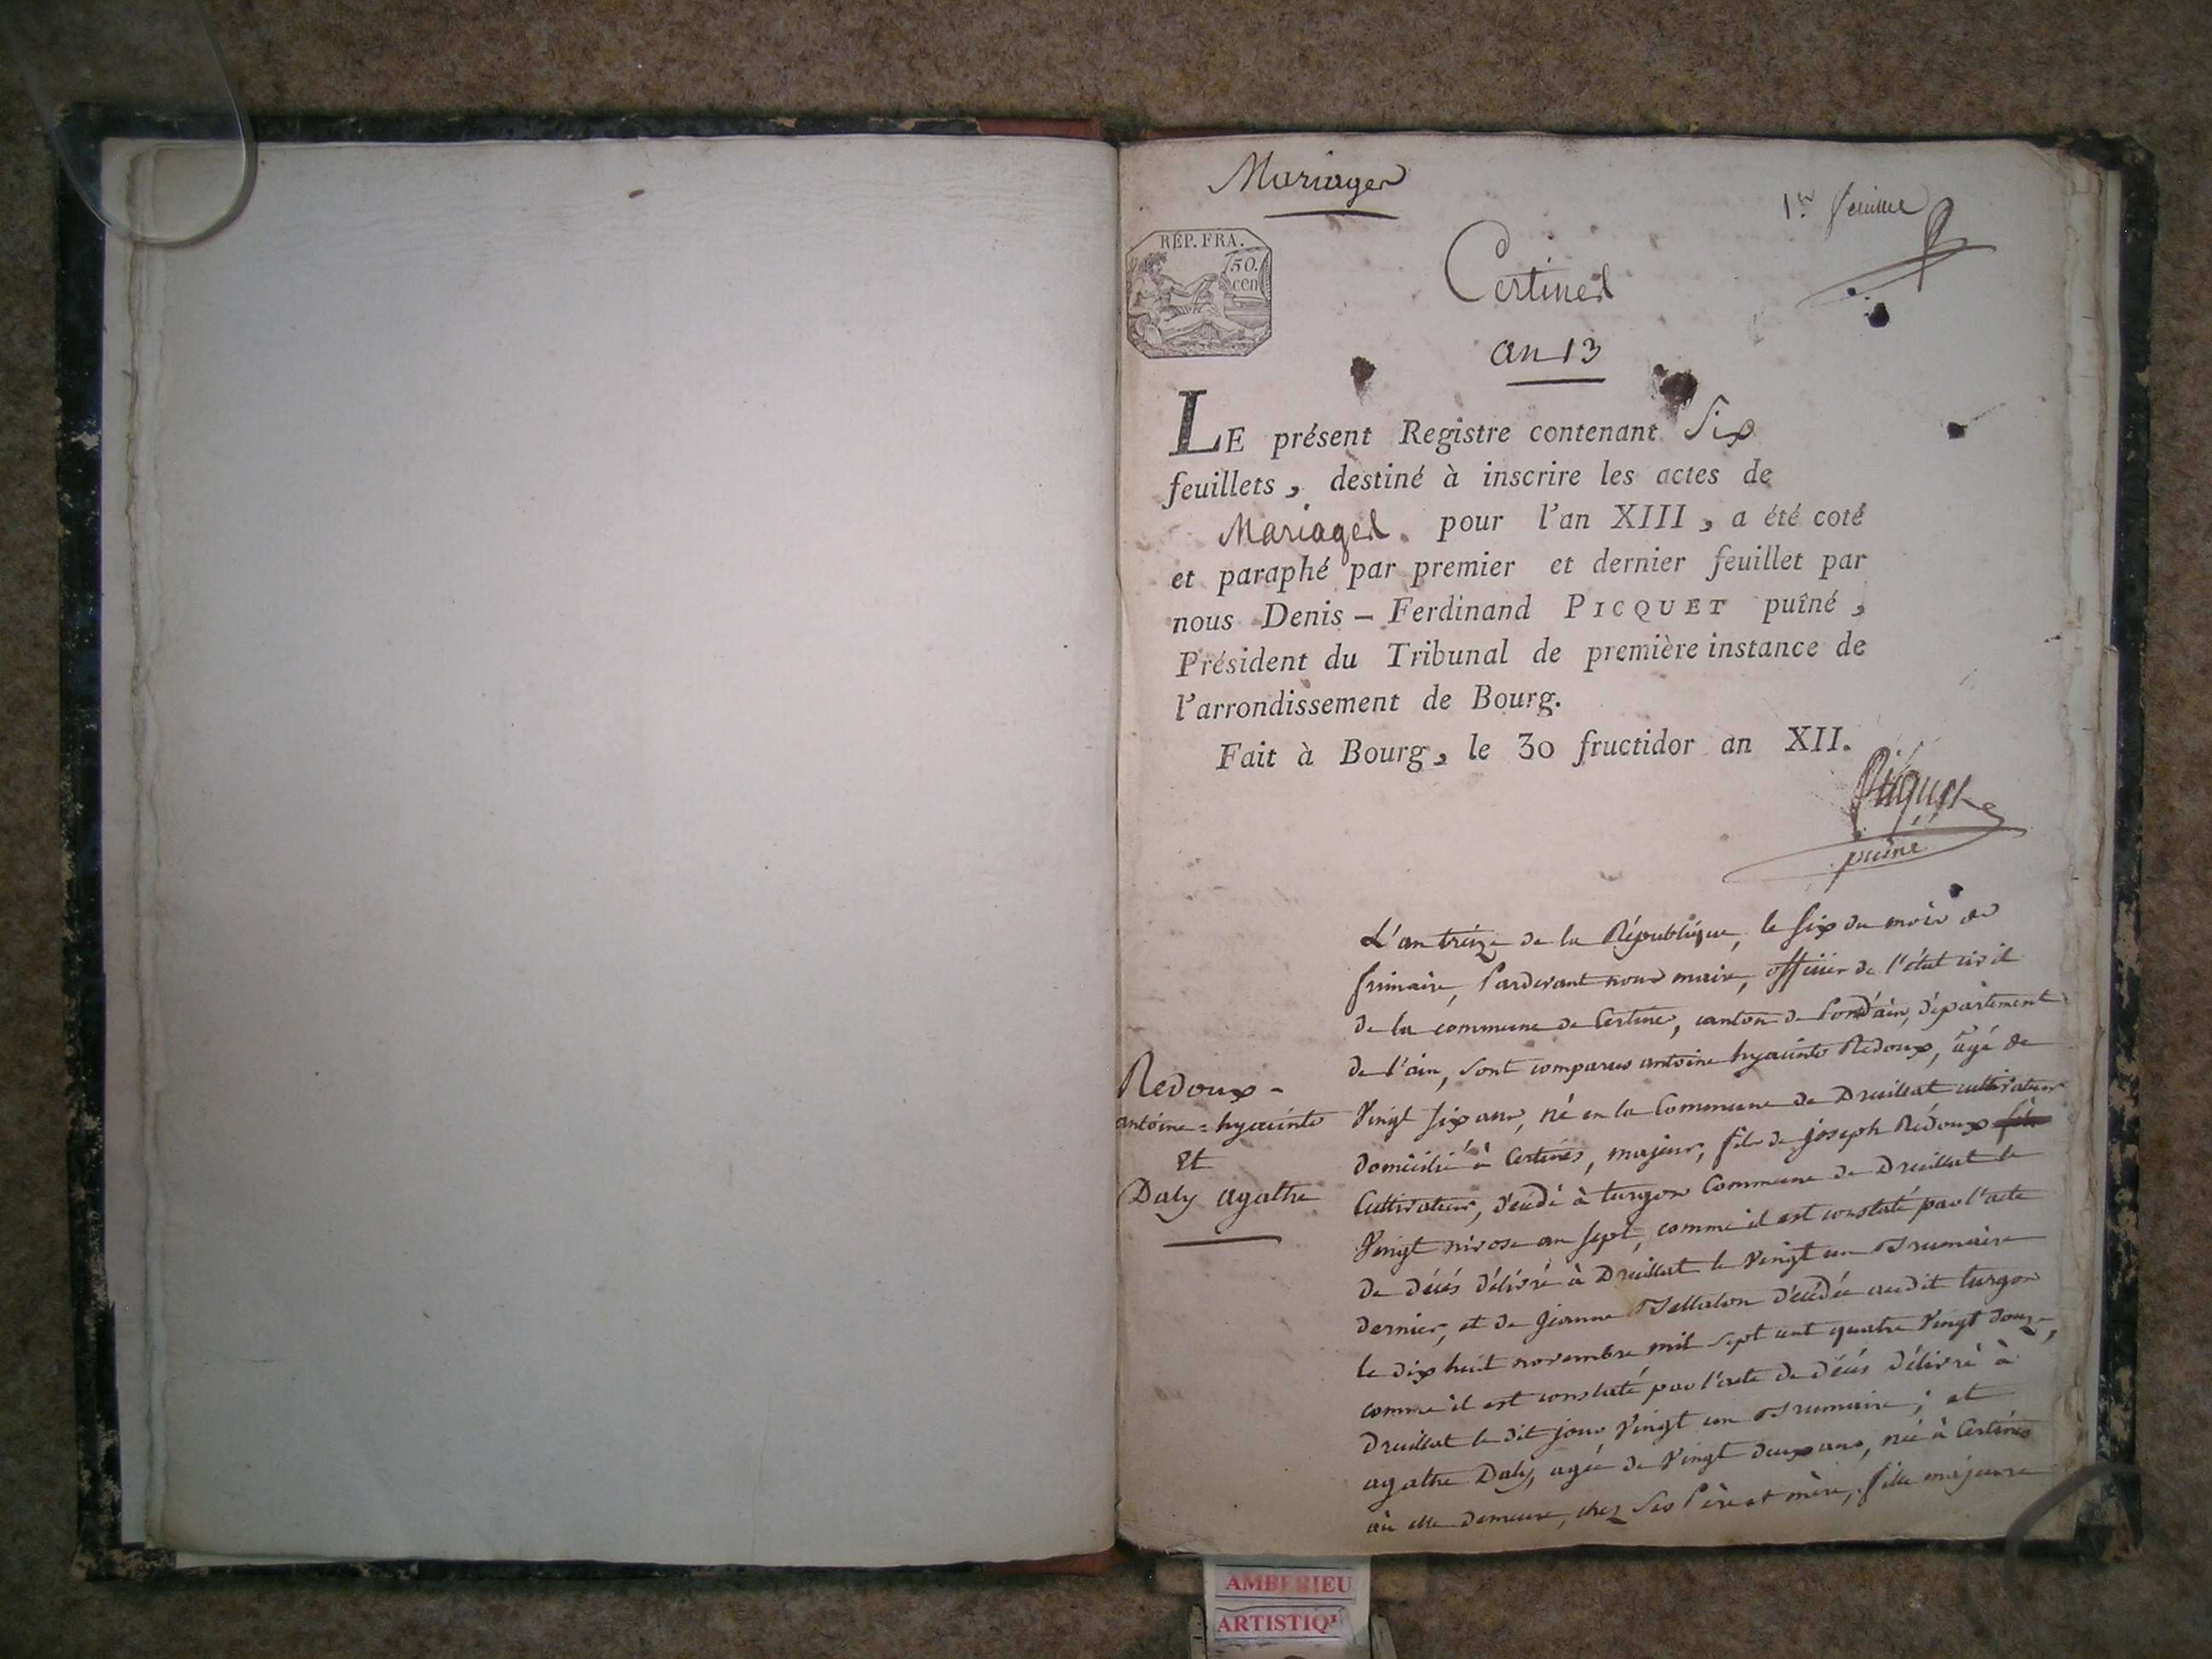 Mariages
1er feuillet
RÉP. FRA.
50.
cen
Certines
an 13
LE présent Registre contenant Six
feuillets, destiné à inscrire les actes de
Mariages. pour l'an XIII, a été coté
et paraphé par premier et dernier feuillet par
nous Denis-Ferdinand PICQUET puîné,
Président du Tribunal de première instance de
l'arrondissement de Bourg.
Fait à Bourg, le 30 fructidor an XII.
Picquet
puiné
L'an treize de la République, le six du mois de
frimaire, Pardevant nous maire, officier de l'état civil
de la commune de Certines, canton de Pondain, département
de l'ain, sont comparus antoine hyacinte Redoux, âgé de
Vingt six ans, né en la Commune de Druillat cultivateur
domicilié à Certines, majeur, fils de joseph Redoux
Cultivateur, décédé à turgon Commune de Druillat le
Vingt nivose an sept, comme il est constaté par l'acte
de décés délivré à Druillat le Vingt un Brumaire
dernier, et de jeanne décédée audit turgon
le dix huit novembre mil sept cent quatre Vingt douze,
comme il est constaté par l'acte de décés délivré à
Druillat le dit jour Vingt un Brumaire ; et
agathe Daly, agée de Vingt deux ans, née à Certines
où elle demeure, chez ses Père et mère, fille majeure
Redoux -
antoine = hyacinte
Et
Daly agathe
AMBERIEU
ARTISTIQU